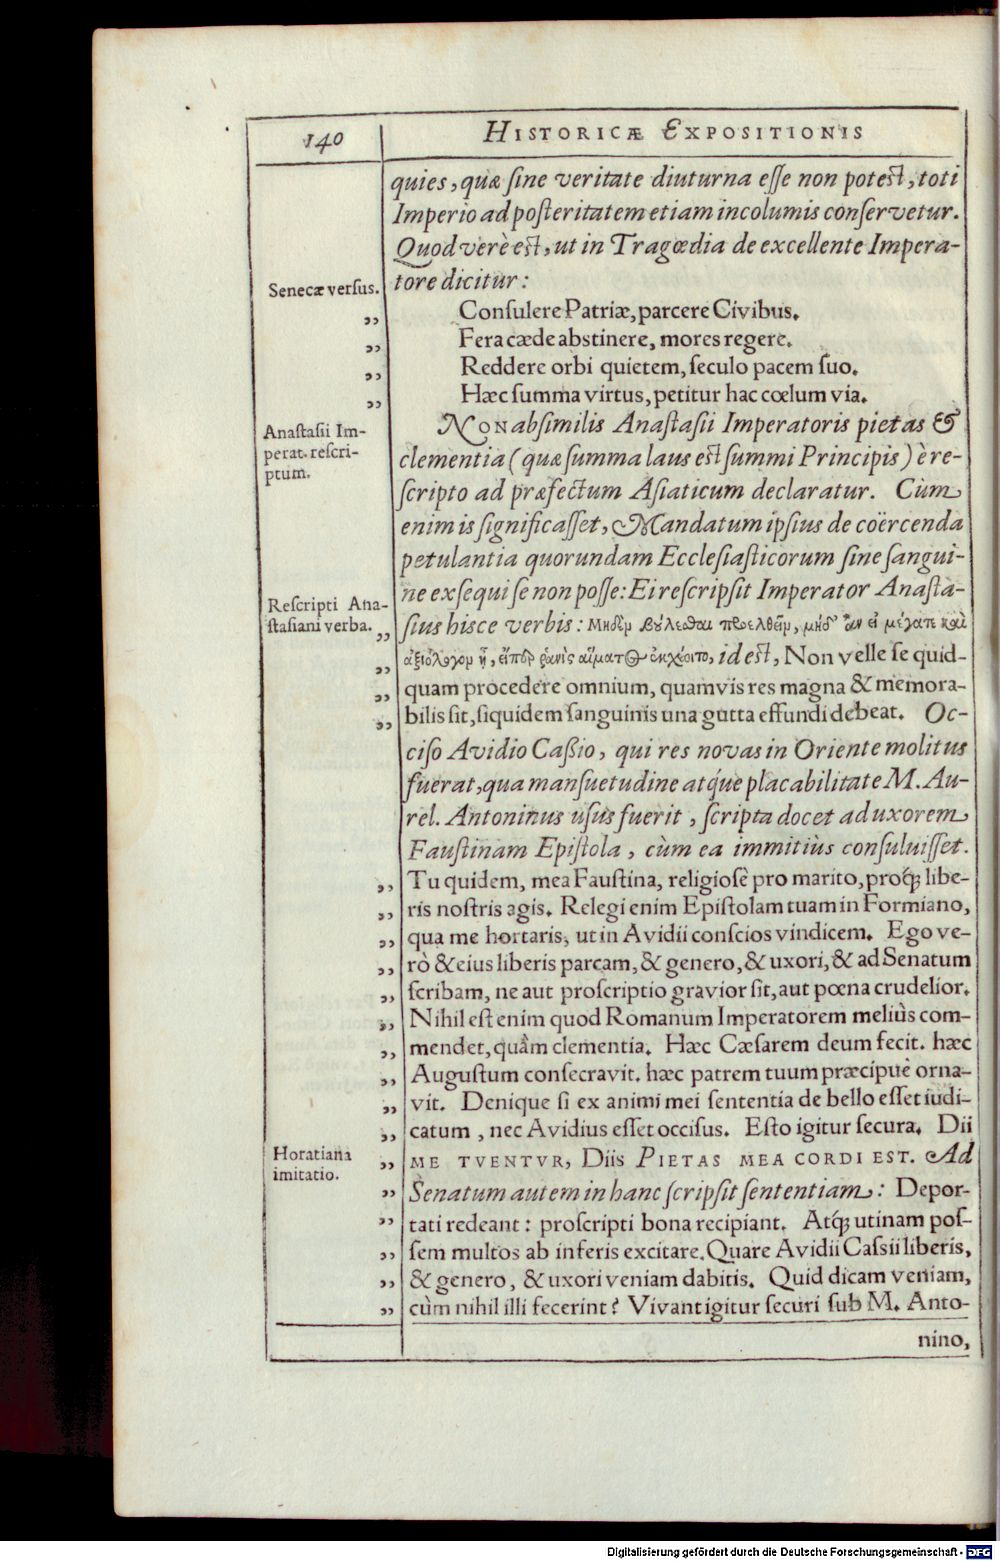 140
HISTORICÆ EXPOSITIONIS
quies, quæ sine veritate diuturna esse non potest, toti
Imperio ad posteritatem etiam incolumis conservetur.
Quod verè est, ut in Tragœdia de excellente Impera-
tore dicitur:
Senecæ versus.
„ Consulere Patriæ, parcere Civibus.
„ Fera cæde abstinere, mores regere.
„ Reddere orbi quietem, seculo pacem suo.
„ Hæc summa virtus, petitur hac cœlum via.
Anastasii Im-
perat. rescri-
ptum.
NON absimilis Anastasii Imperatoris pietas &
clementia (quæ summa laus est summi Principis) è re-
scripto ad præfectum Asiaticum declaratur. Cùm
enim is significasset, Mandatum ipsius de coërcenda
petulantia quorundam Ecclesiasticorum sine sangui-
ne exsequi se non posse: Ei rescripsit Imperator Anasta-
Rescripti Ana-
stasiani verba.
„ sius hisce verbis: Μηδὲν βούλεσθαι προελθεῖν, μηδ' ἂν εἰ μέγα τε καὶ
„ ἀξιόλογον ᾖ, εἴπερ ῥανὶς αἵματος ἐκχέοιτο, id est, Non velle se quid-
„ quam procedere omnium, quamvis res magna & memora-
„ bilis sit, siquidem sanguinis una gutta effundi debeat. Oc-
ciso Avidio Caßio, qui res novas in Oriente molitus
fuerat, qua mansuetudine atq́ue placabilitate M. Au-
rel. Antoninus usus fuerit, scripta docet ad uxorem
Faustinam Epistola, cùm ea immitiùs consuluisset.
„ Tu quidem, mea Faustina, religiosè pro marito, proq́; libe-
„ ris nostris agis. Relegi enim Epistolam tuam in Formiano,
„ qua me hortaris, ut in Avidii conscios vindicem. Ego ve-
„ rò & eius liberis parcam, & genero, & uxori, & ad Senatum
„ scribam, ne aut proscriptio gravior sit, aut pœna crudelior.
„ Nihil est enim quod Romanum Imperatorem meliùs com-
„ mendet, quâm clementia. Hæc Cæsarem deum fecit. hæc
„ Augustum consecravit. hæc patrem tuum præcipuè orna-
„ vit. Denique si ex animi mei sententia de bello esset iudi-
„ catum, nec Avidius esset occisus. Esto igitur secura. Dii
Horatiana
imitatio.
„ ME TVENTVR, Diis PIETAS MEA CORDI EST. Ad
„ Senatum autem in hanc scripsit sententiam: Depor-
„ tati redeant: proscripti bona recipiant. Atq́; utinam pos-
„ sem multos ab inferis excitare. Quare Avidii Cassii liberis,
„ & genero, & uxori veniam dabitis. Quid dicam veniam,
„ cùm nihil illi fecerint? Vivant igitur securi sub M. Anto-
nino,
Digitalisierung gefördert durch die Deutsche Forschungsgemeinschaft - DFG